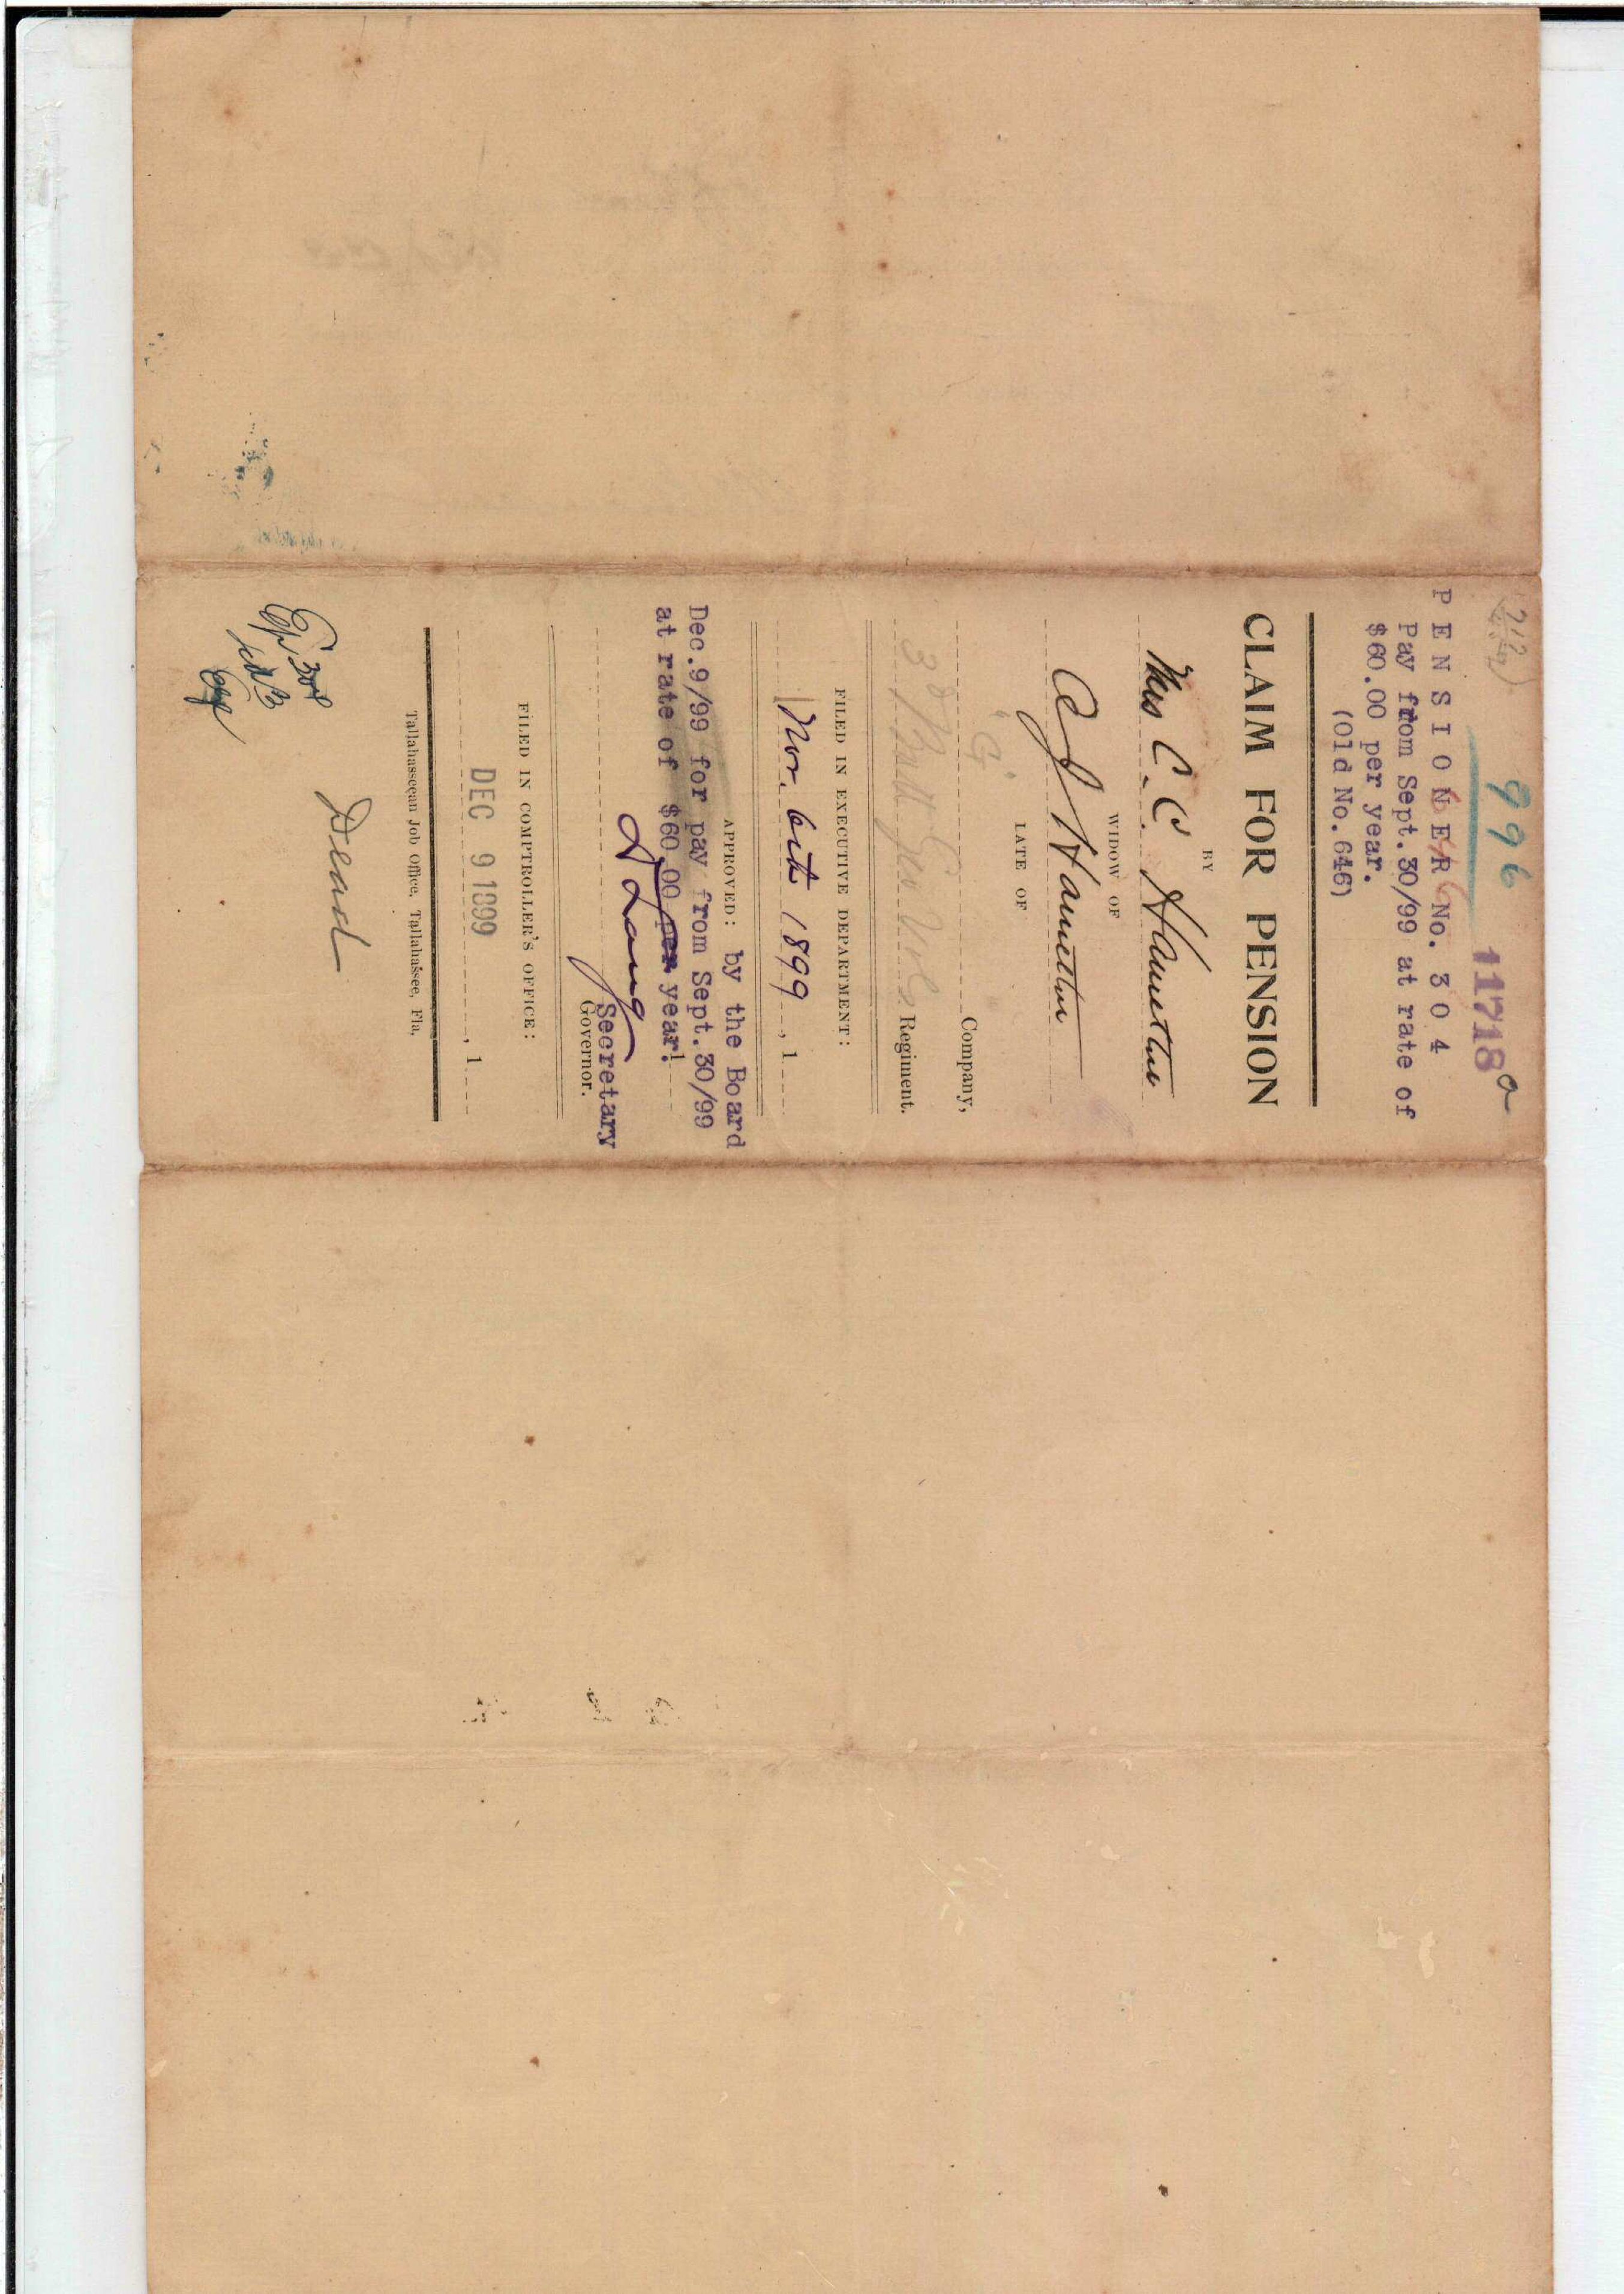 996
11718 a
PENSIONER No. 304
Pay from Sept.30/99 at rate of
$60.00 per year.
(Old No.646)
CLAIM FOR PENSION
BY
Mrs C. C. Hamilton
WIDOW OF
C J Hamilton
LATE OF
"G" Company,
3d Batt Geo Vols Regiment.
FILED IN EXECUTIVE DEPARTMENT:
Nov. 6th 1899, 1
APPROVED: by the Board
Dec.9/99 for pay from Sept.30/99
at rate of $60.00 per year.
D Lang
Secretary
Governor.
FILED IN COMPTROLLER'S OFFICE:
DEC 9 1899, 1
Tallahasseean Job Office, Tallahassee, Fla.
Dead